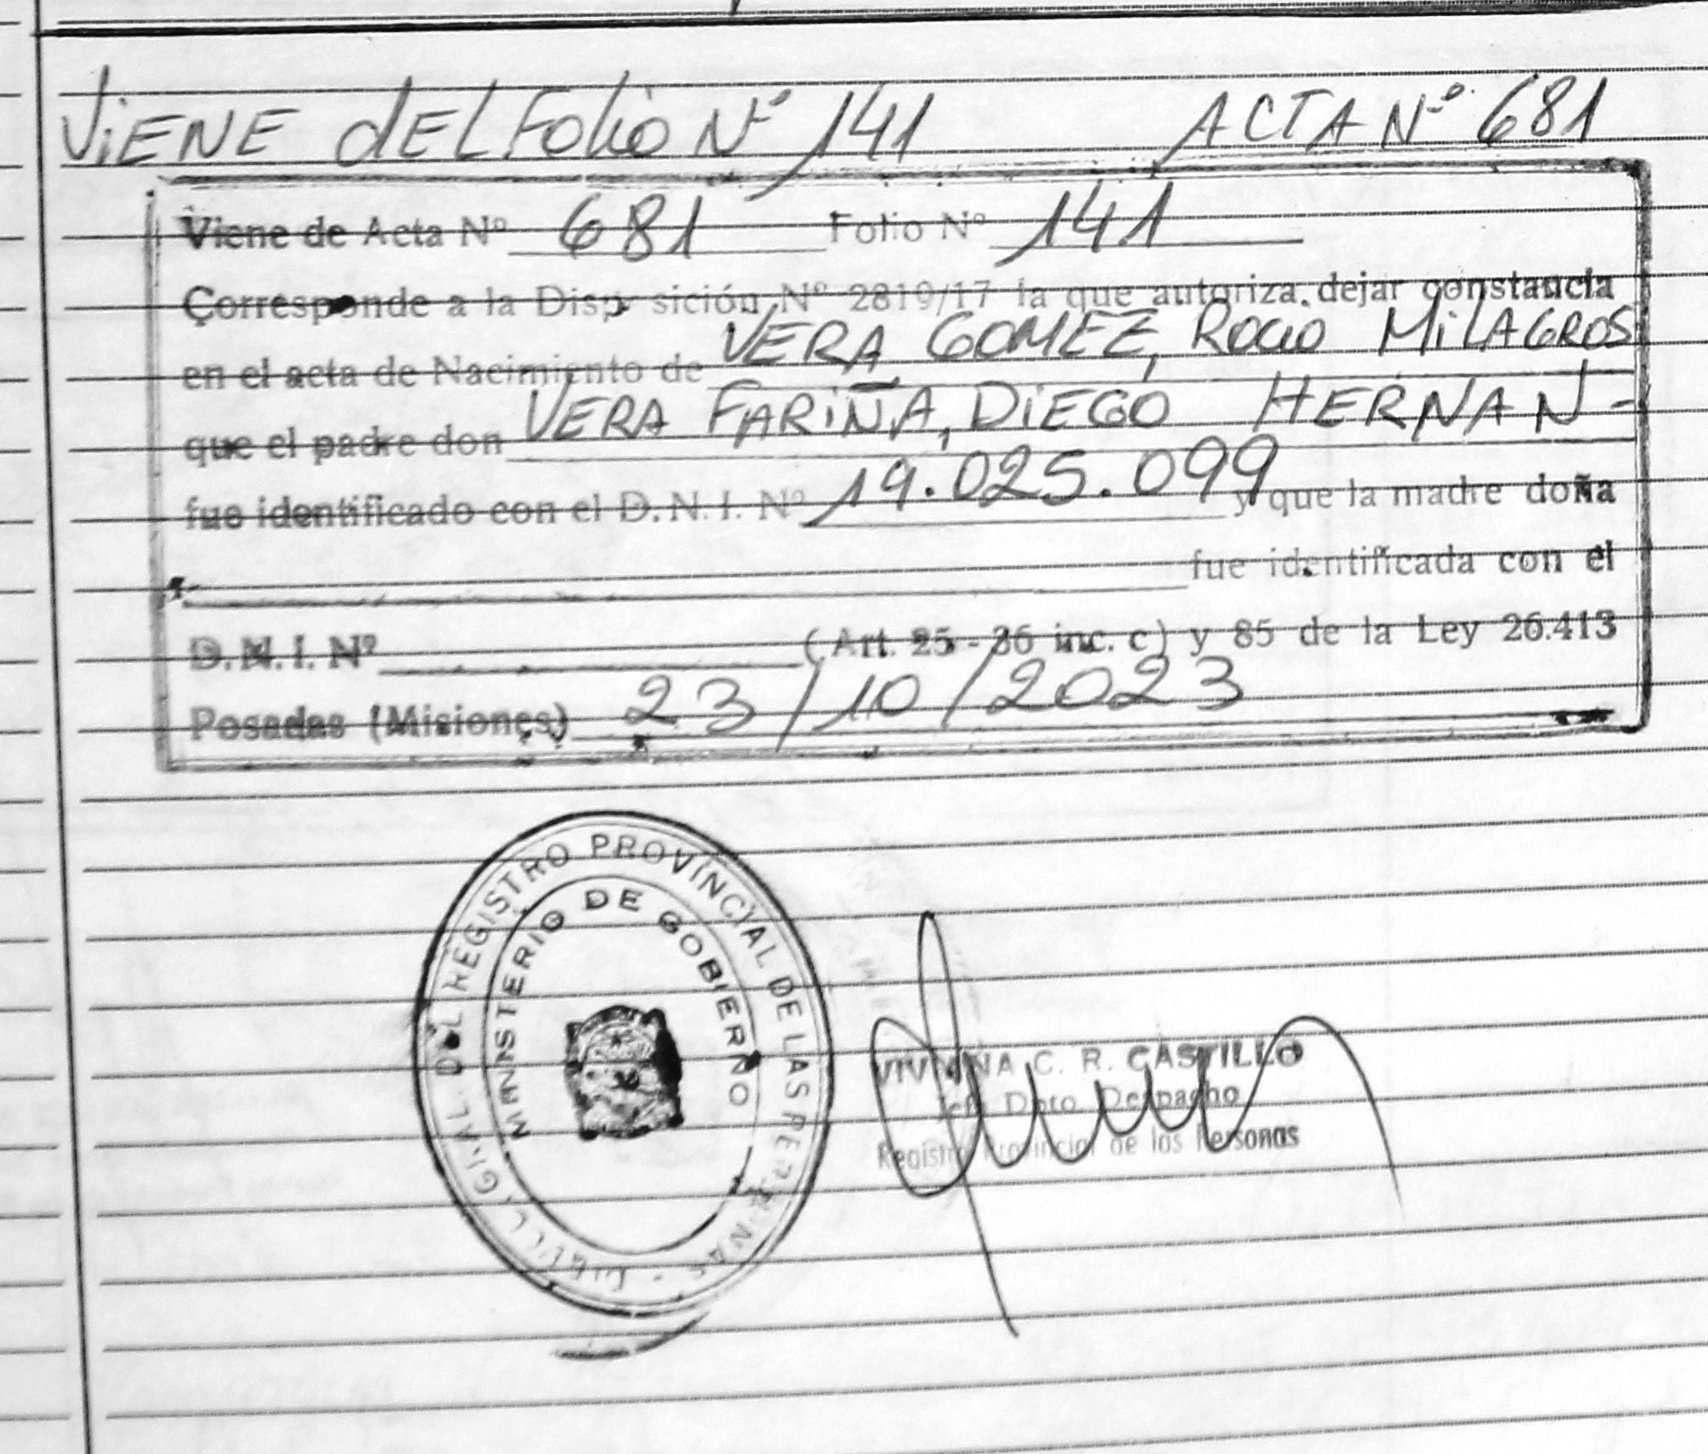 ViENE dEL Folio Nº 141 ACTA Nº 681
Viene de Acta Nº 681 Folio Nº 141
Corresponde a la Disp sición Nº 2819/17 la que autoriza dejar constancia
en el acta de Nacimiento de VERA GOMEZ, Rocio MiLAGROS
que el padre don VERA FARIÑA, DIEGO HERNAN-
fue identificado con el D.N.I. Nº 19.025.099 y que la madre doña
fue identificada con el
D.N.I. Nº (Art. 25 - 36 inc. c) y 85 de la Ley 26.413
Posadas (Misiones) 23/10/2023
REGISTRO PROVINCIAL DE LAS PERSONAS
MINISTERIO DE GOBIERNO
VIVIANA C. R. CASTILLO
Jefe Dpto. Despacho
Registro Provincial de las Personas